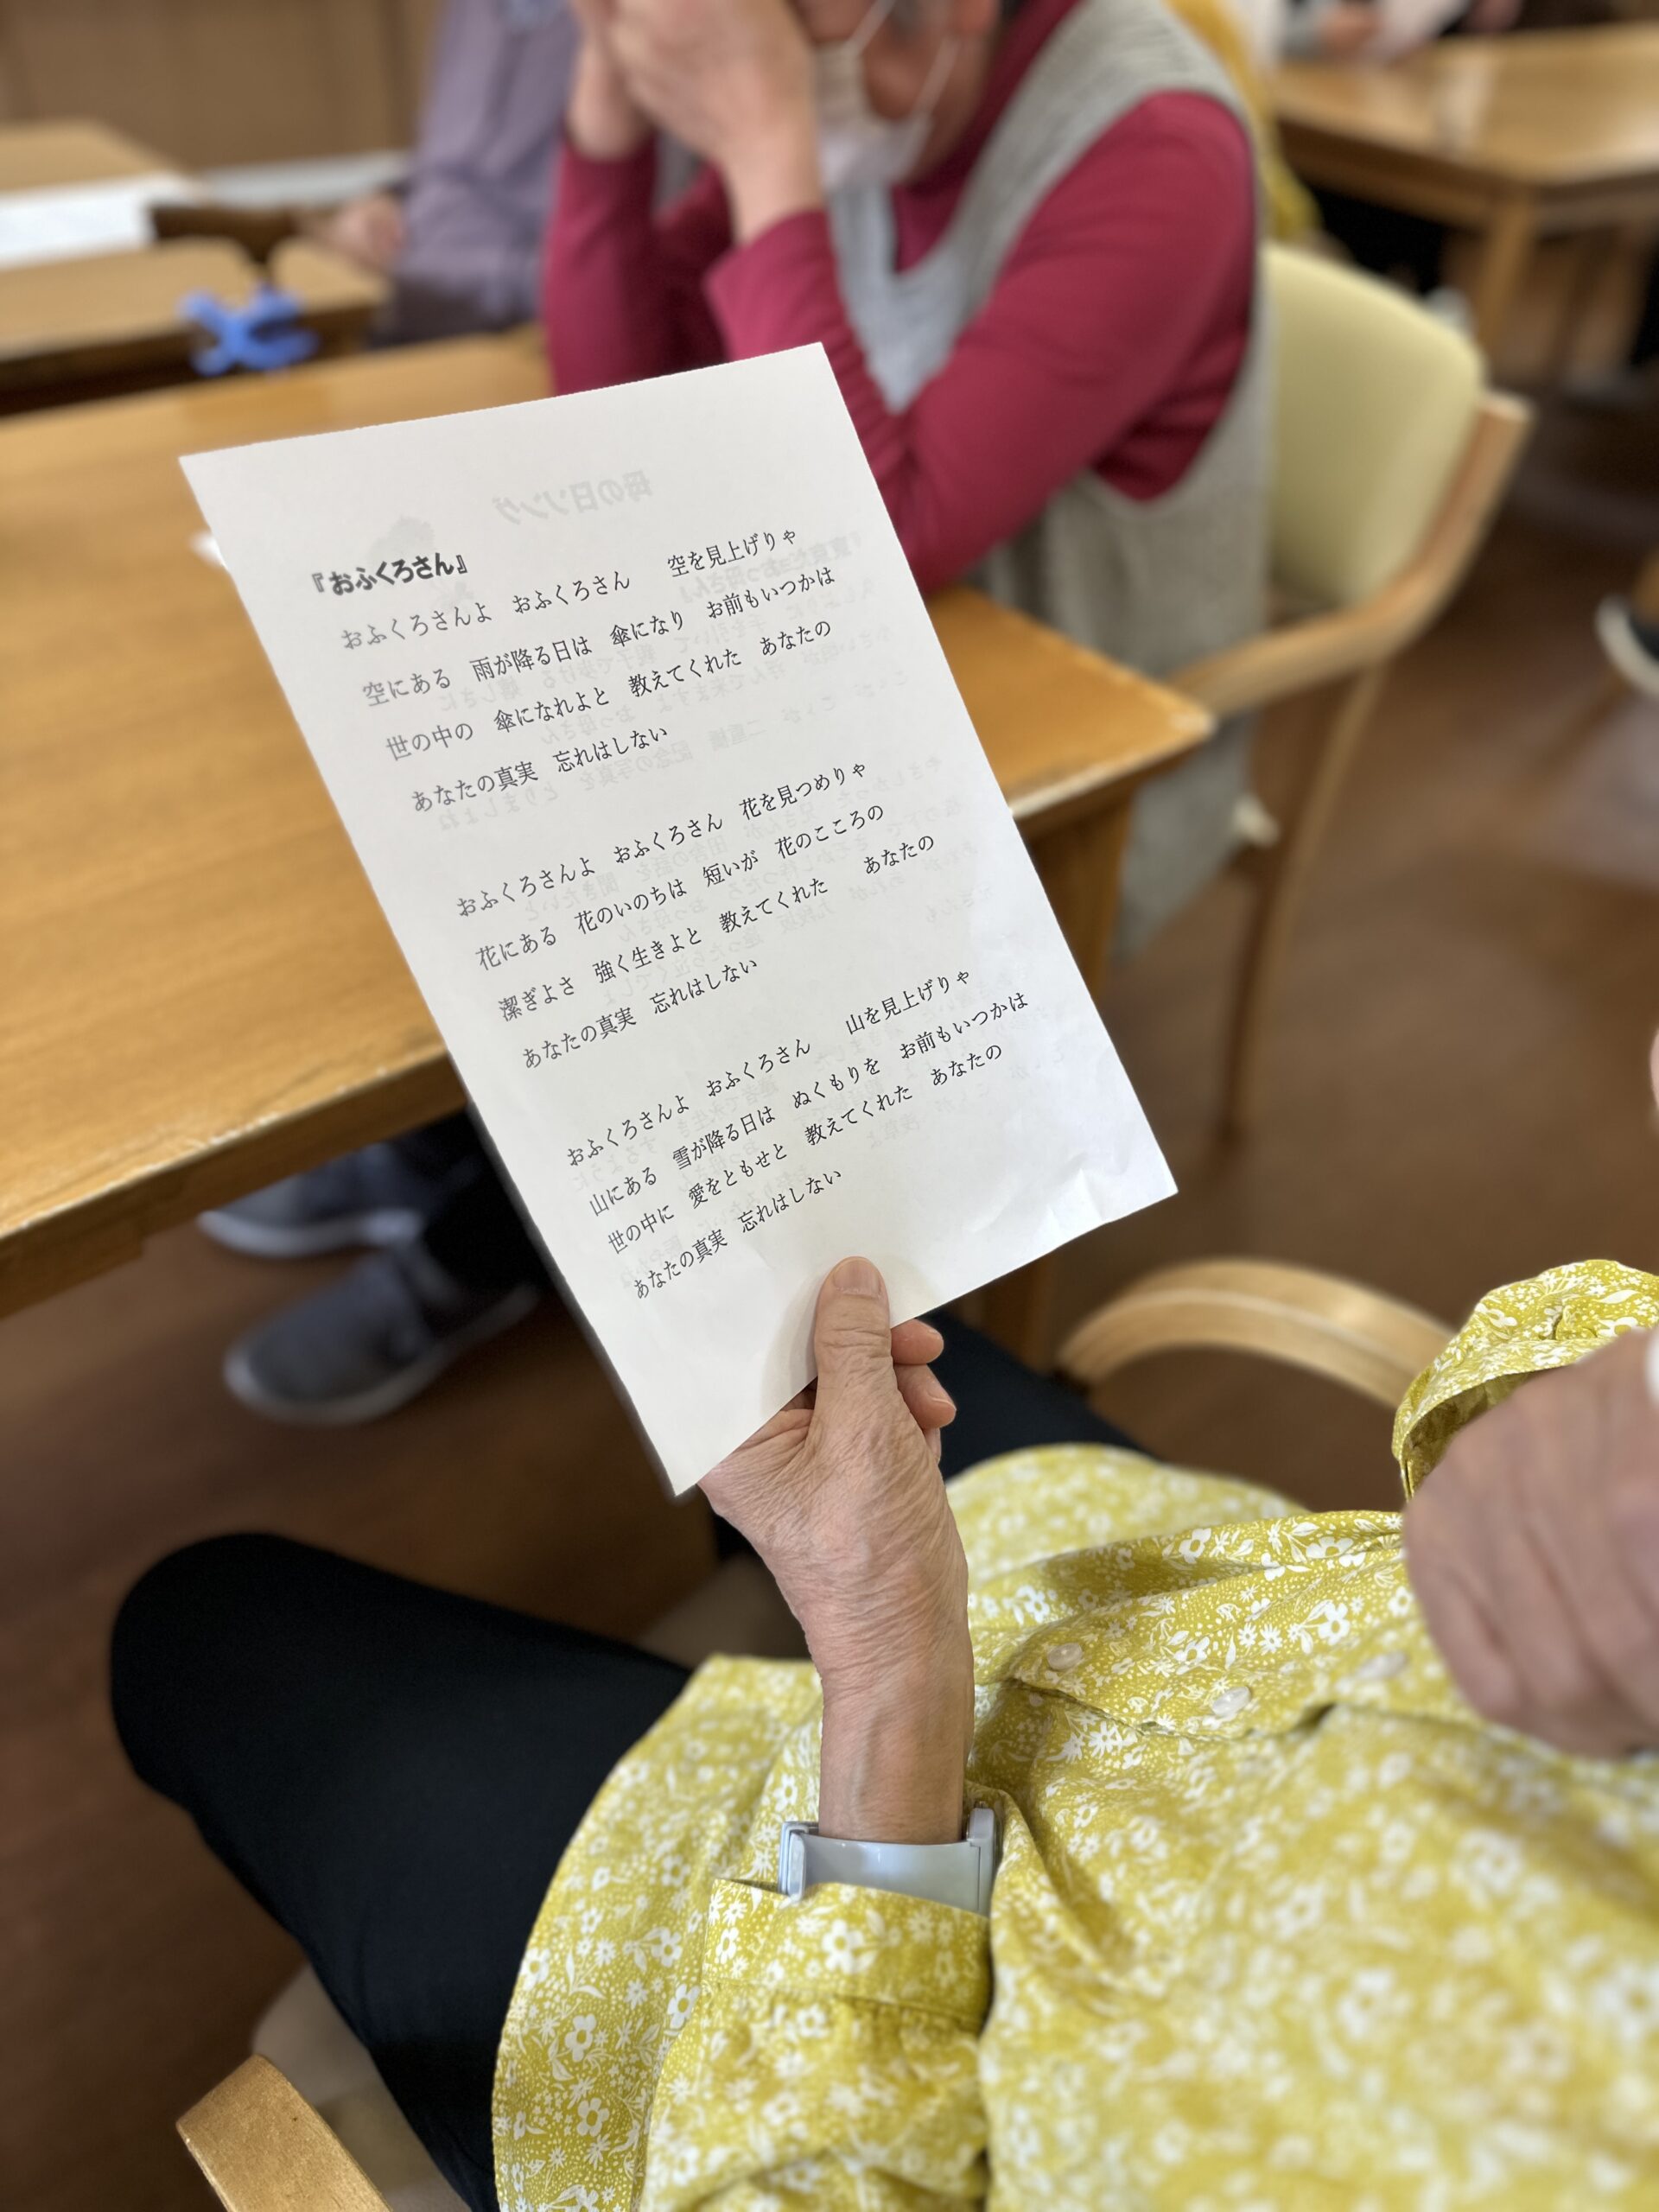 母の日ソング
『おふくろさん』
おふくろさんよ　おふくろさん　　空を見上げりゃ
空にある　雨が降る日は　傘になり　お前もいつかは
世の中の　傘になれよと　教えてくれた　あなたの
あなたの真実　忘れはしない
おふくろさんよ　おふくろさん　花を見つめりゃ
花にある　花のいのちは　短いが　花のこころの
潔ぎよさ　強く生きよと　教えてくれた　　あなたの
あなたの真実　忘れはしない
おふくろさんよ　おふくろさん　　山を見上げりゃ
山にある　雪が降る日は　ぬくもりを　お前もいつかは
世の中に　愛をともせと　教えてくれた　あなたの
あなたの真実　忘れはしない